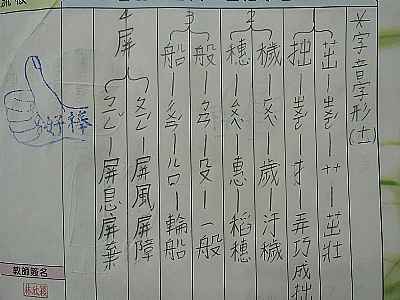 *字音字形(十一)
茁—ㄓㄨㄛˊ—艹—茁壯
拙—ㄓㄨㄛˊ—扌—弄巧成拙
2 穢—ㄏㄨㄟˋ—歲—汙穢
穗—ㄙㄨㄟˋ—惠—稻穗
3 般—ㄅㄢ—殳—一般
船—ㄔㄨㄢˊ—㕣—輪船
4 屏
ㄆㄧㄥˊ—屏風屏障
ㄅㄧㄥˇ—屏息屏棄
你好棒
教師簽名